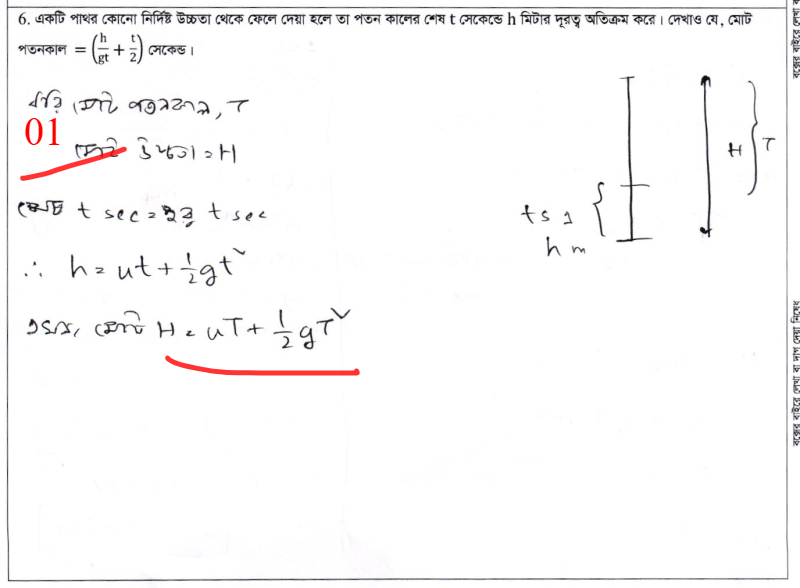 6. একটি পাথর কোনো নির্দিষ্ট উচ্চতা থেকে ফেলে দেয়া হলে তা পতন কালের শেষ t সেকেন্ডে h মিটার দূরত্ব অতিক্রম করে। দেখাও যে, মোট
পতনকাল = (h/gt + t/2) সেকেন্ড।
ধরি মোট পতনকাল, T
01
মোট উচ্চতা = H
শেষ t sec = t sec
∴ h = ut + 1/2 gt²
মোট H = uT + 1/2 gT²
t s এ
h m
H
T